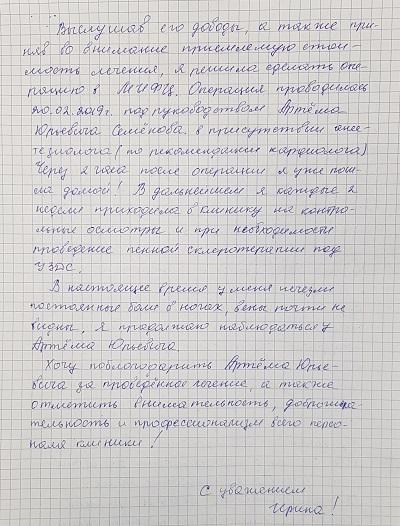 Выслушав его доводы, а также при-
няв во внимание приемлемую стои-
мость лечения, я решила сделать опе-
рацию в МИФЦ. Операция проводилась
20.02.2019г. под руководством Артёма
Юрьевича Семёнова в присутствии анес-
тезиолога (по рекомендации кардиолога)
Через 2 часа после операции я уже пош-
ла домой! В дальнейшем я каждые 2
недели приходила в клинику на контро-
льные осмотры и при необходимости
проведение пенной склеротерапии под
УЗДС.
В настоящее время у меня исчезли
постоянные боли в ногах, вены почти не
видны, я продолжаю наблюдаться у
Артёма Юрьевича.
Хочу поблагодарить Артёма Юрье-
вича за проведённое лечение, а также
отметить внимательность, доброжела-
тельность и профессионализм всего персо-
нала клиники!
С уважением
Ирина!